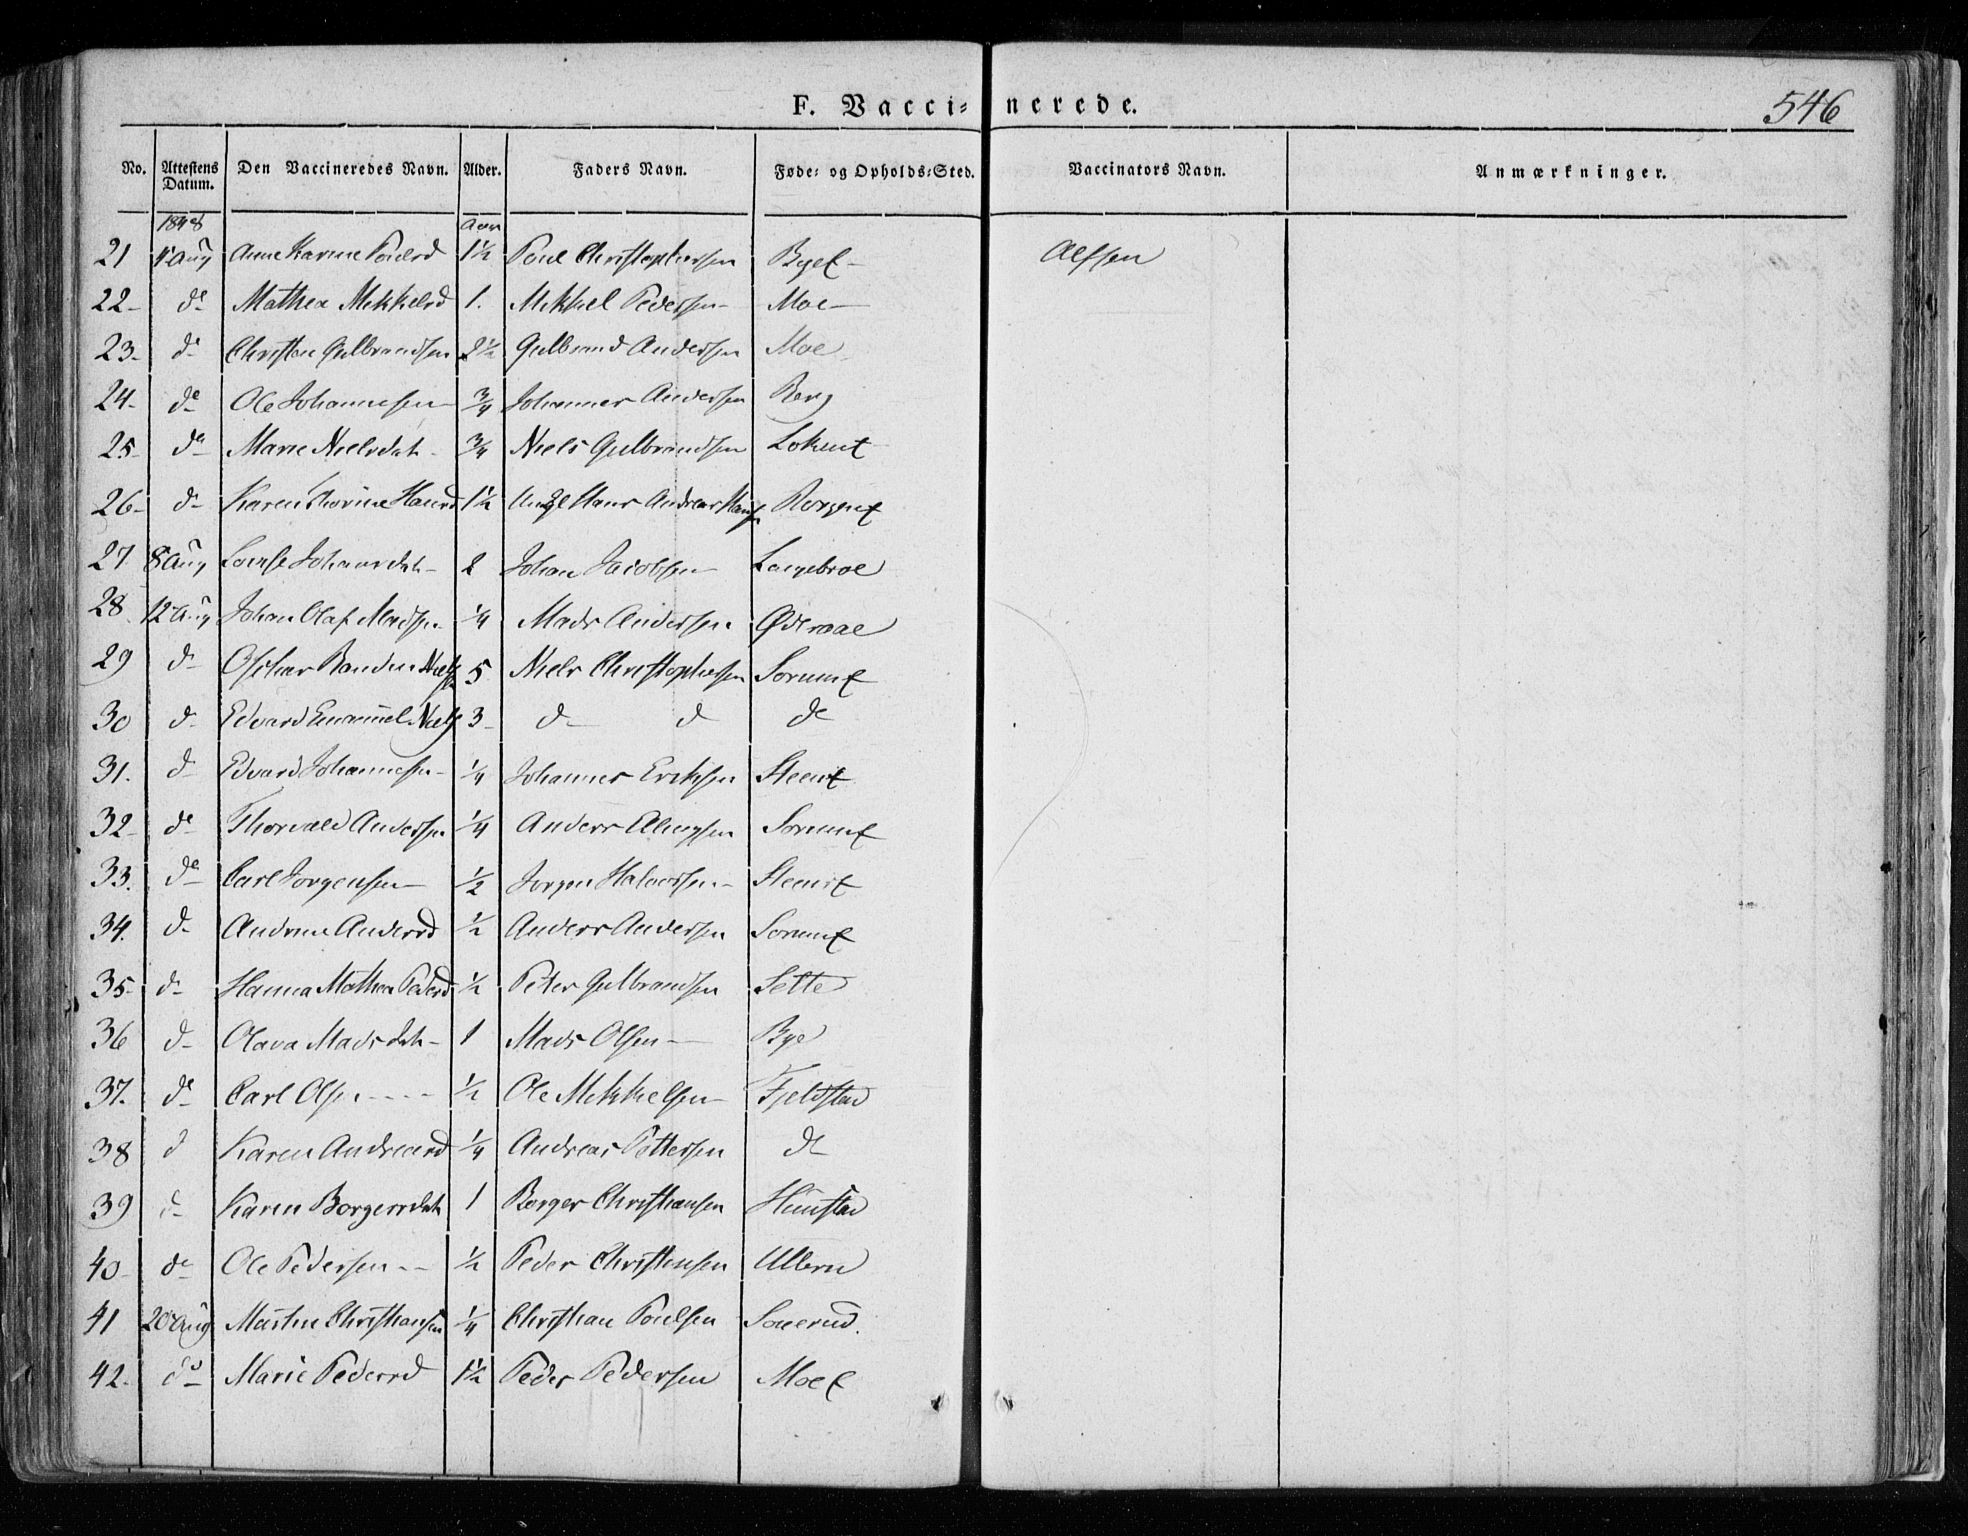 F. Vacci= nerede.
546
No. Attestens Datum. Den Vaccineredes Navn. Alder. Faders Navn. Føde= og Opholds=Sted. Vaccinators Navn. Anmærkninger.
1848 Aar
21 Aug Anne Karine Poulsd 1½ Poul Christophersen Alfsen
22- de Mathea Mikkelsd 1. Mikkel Pedersen Moe
23- de Christen Gulbrandsen 2½ Gulbrand Andersen Moe
24- de Ole Johannesen ¾ Johannes Andersen Berg
25- de Marie Nielsdat ¾ Niels Gulbrandsen
26- de Karen Thorine Hansd 1½ Hans Andreas
27 8 Aug Lovise Johansdat- 2 Johan Jacobsen Langebroe
28 12 Aug Johan Olaf Madsen ¼ Mads Andersen
29 de Oschar 5 Niels Christophersen
30 de Edvard Emanuel Niels 3- de de de
31. de Edvard Johannesen ¼ Johannes Eriksen
32- de Thorvald Andersen ¼ Anders
33. de Carl Jorgensen ½ Jorgen Halvorsen
34. de Andrine Andersd ½ Anders Andersen
35- de Hanna Mathea Pedersd ½ Peter Gulbrandsen Sette
36 de Olava Madsdat- 1 Mads Olsen Bye
37. de Carl Olsen ½ Ole Mikkelsen Fjeldstad
38 d Karen Andreasd ¼ Andreas Pettersen de
39 de Karen Borgersdat 1 Borger Christiansen
40- de Ole Pedersen ½ Peder Christensen Ullern
41 20 Aug Martin Christiansen ¼ Christian Poulsen
42- do Marie Pedersd 1½ Peder Pedersen